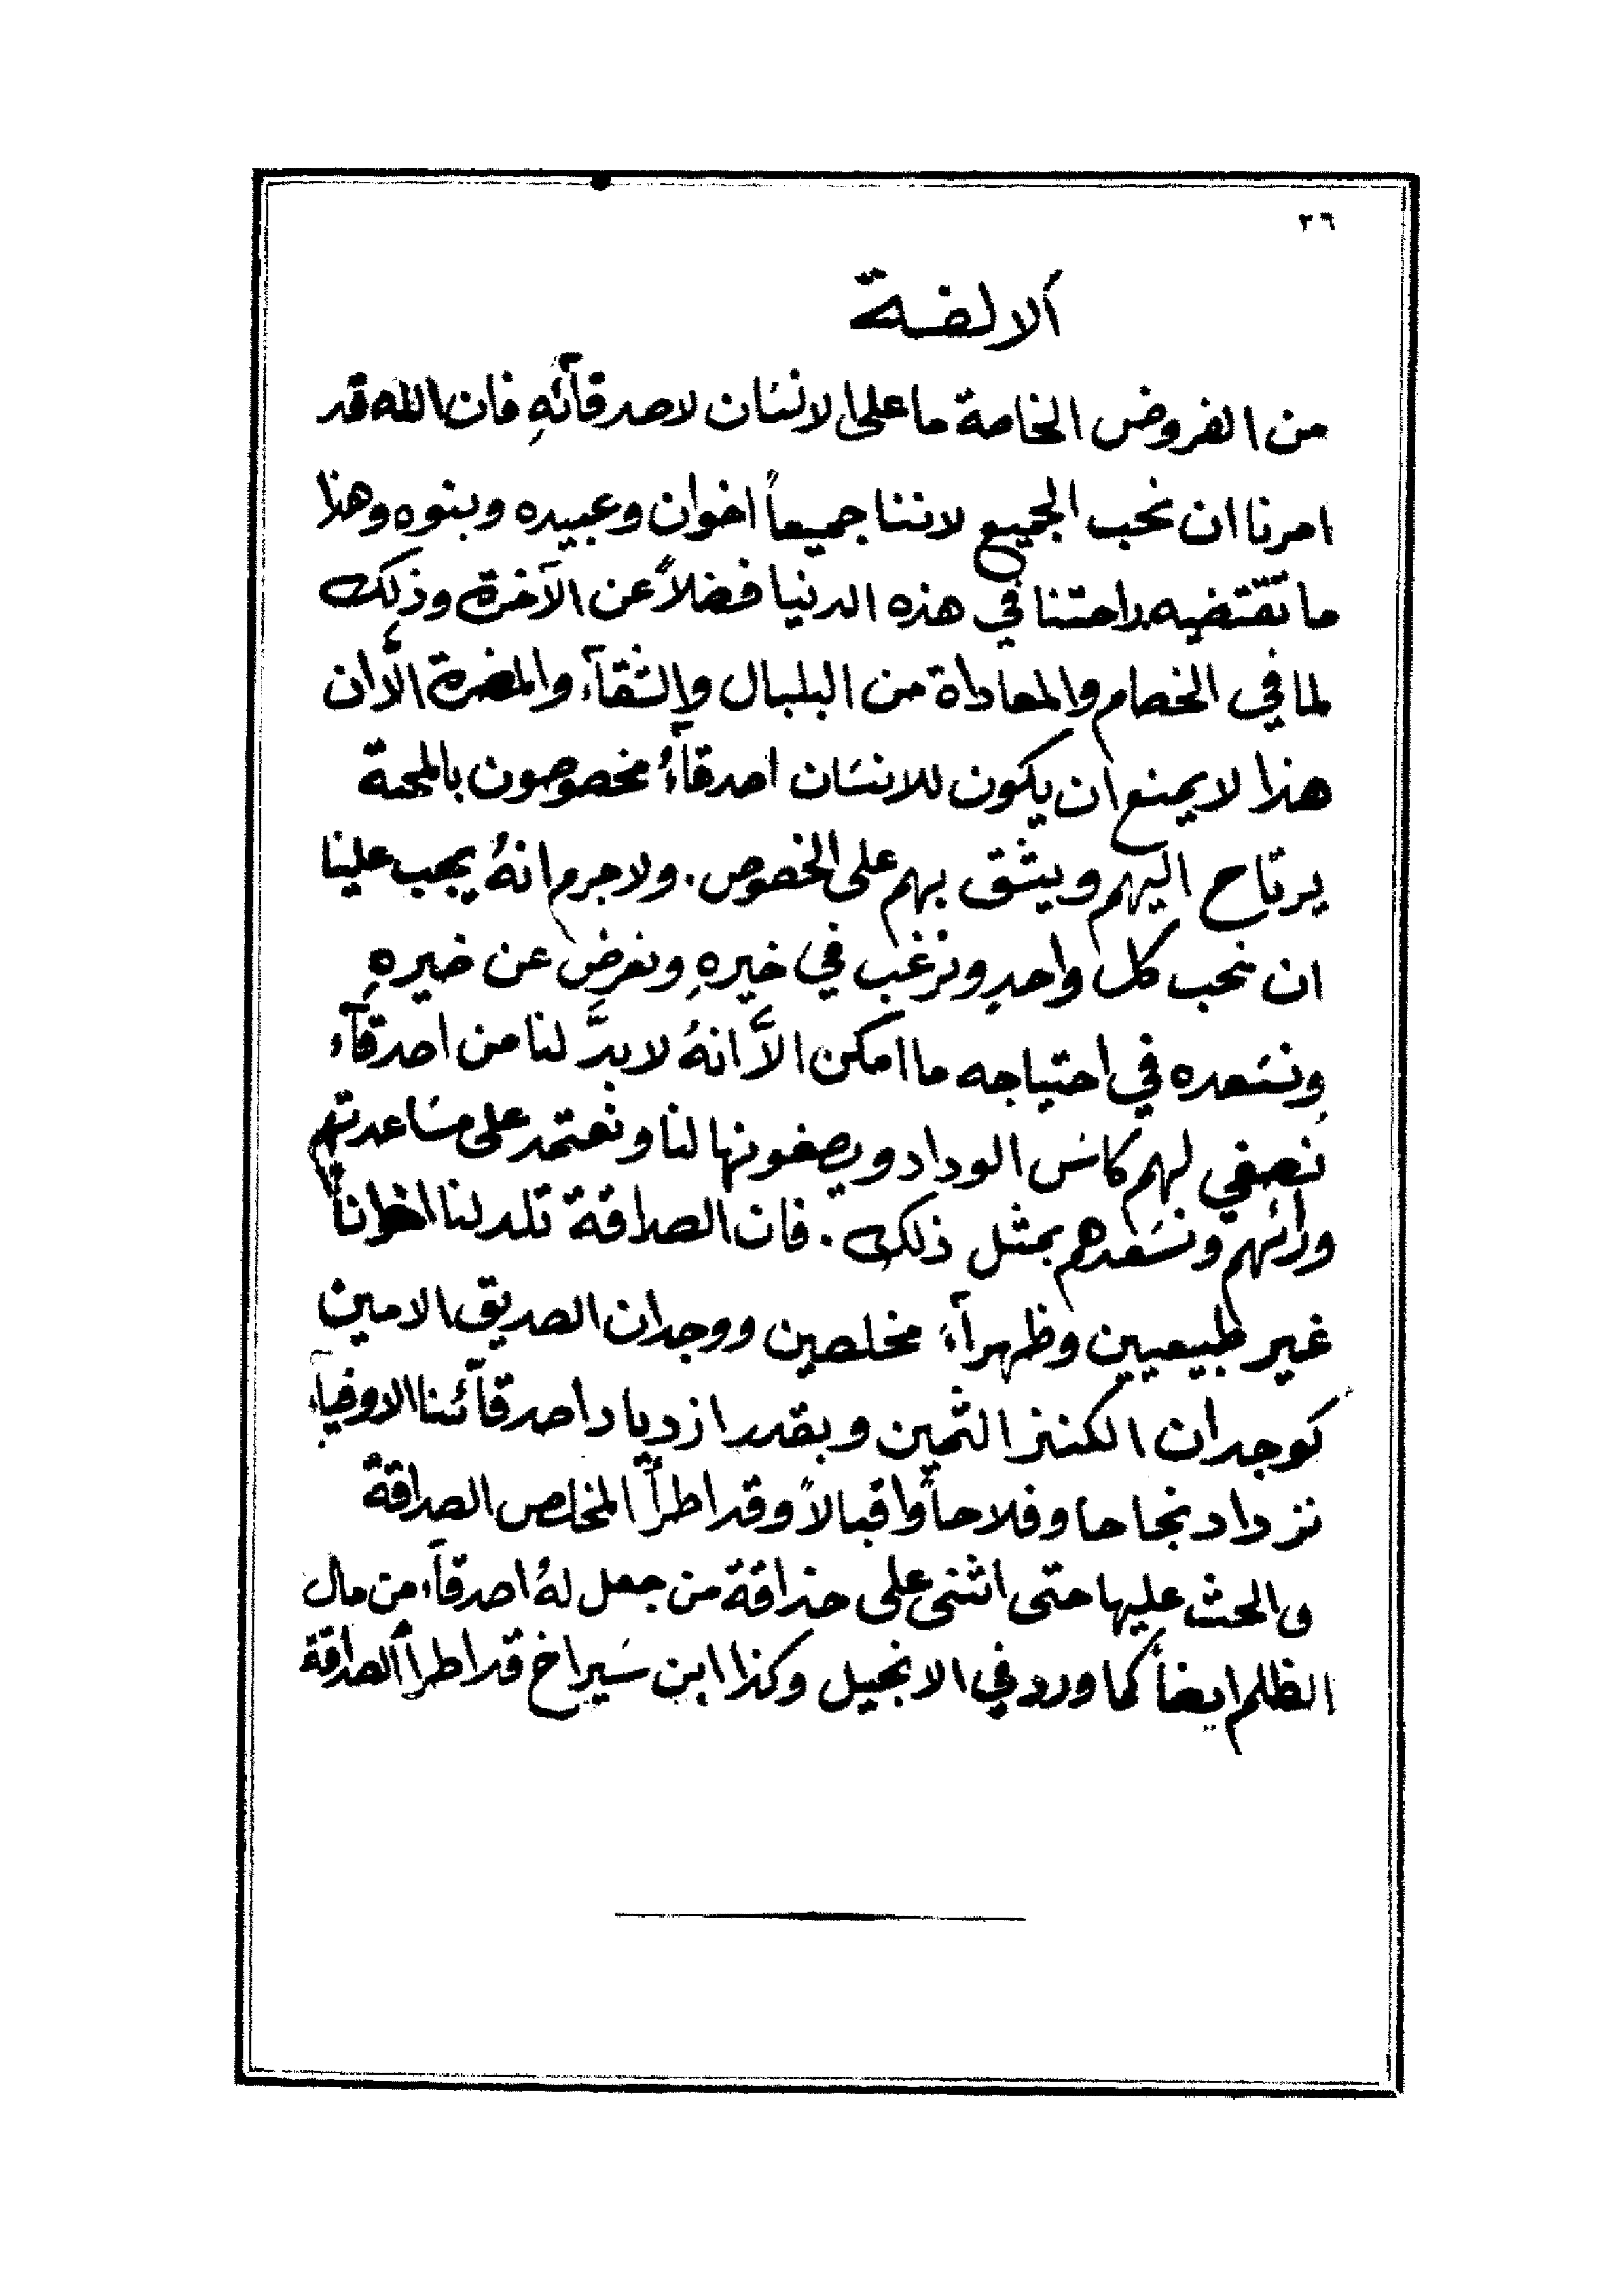 ٣٦
ألالفة
من الفروض الخاصة ما على الانسان لاصدقآئهِ فان الله قد
امرنا ان نحب الجميع لاننا جميعاً اخوان وعبيده وبنوه وهذا
ما تقتضيه راحتنا في هذه الدنيا فضلاً عن الآخرة وذلك
لما في الخصام والمعاداة من البلبال والشقآء والمضرة الَّا ان
هذا لا يمنع ان يكون للانسان اصدقآءُ مخصوصون بالمحبة
يرتاح اليهم ويثق بهم على الخصوص. ولا جرم انهُ يجب علينا
ان نحب كل واحدٍ ونرغب في خيرهِ ونعرض عن ضيرهِ
ونسعده في احتياجه ما امكن الاَّ انهُ لا بدَّ لنا من اصدقآء
نصفي لهم كاس الوداد ويصفونها لنا ونعتمد على مساعدتهم
ورأئهم ونسعدهم بمثل ذلك. فان الصداقة تلد لنا اخواناً
غير طبيعيين وظهرآء مخلصين ووجدان الصديق الامين
كوجدان الكنز الثمين وبقدر ازدياد اصدقآئنا الاوفيآء
نزداد نجاحا وفلاحاً واقبالاً وقد اطرأ المخلص الصداقة
والحث عليها حتى اثنى على حذاقة من جعل لهُ اصدقآء من مال
الظلم ايضاً كما ورد في الانجيل وكذا ابن سيراخ قد اطرأ الصداقة